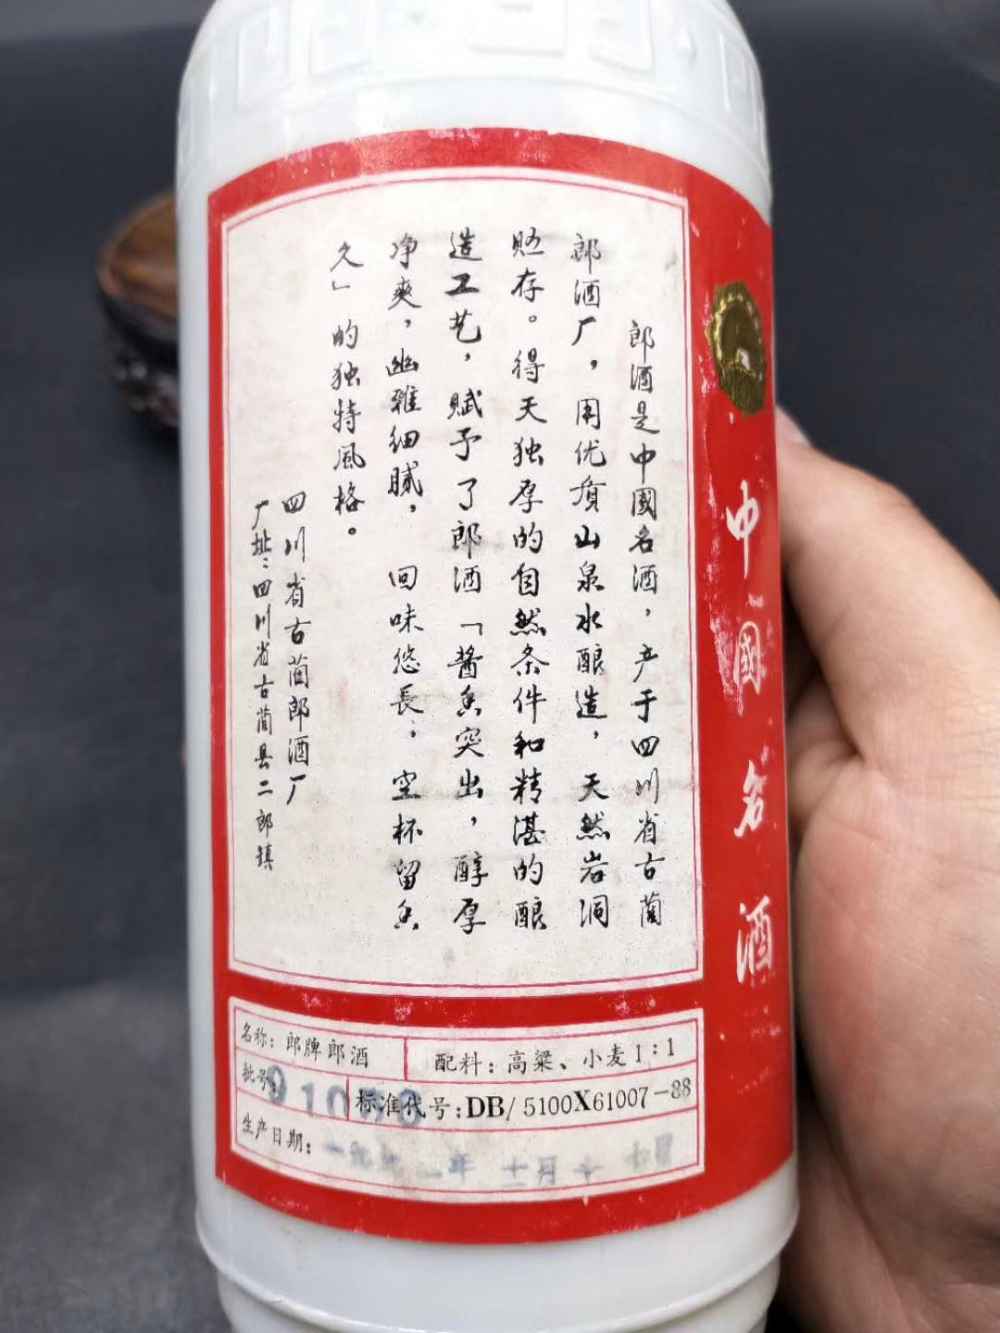 郎酒是中國名酒，产于四川省古蔺
郎酒厂，用优质山泉水酿造，天然岩洞
贮存。得天独厚的自然条件和精湛的酿
造工艺，赋予了郎酒「酱香突出，醇厚
净爽，幽雅细腻，回味悠長，空杯留香
久」的独特風格。
四川省古蔺郎酒厂
厂址：四川省古蔺县二郎镇
中國名酒
名称：郎牌郎酒
配料：高粱、小麦1：1
批号
标准代号：DB/5100X61007-88
生产日期：